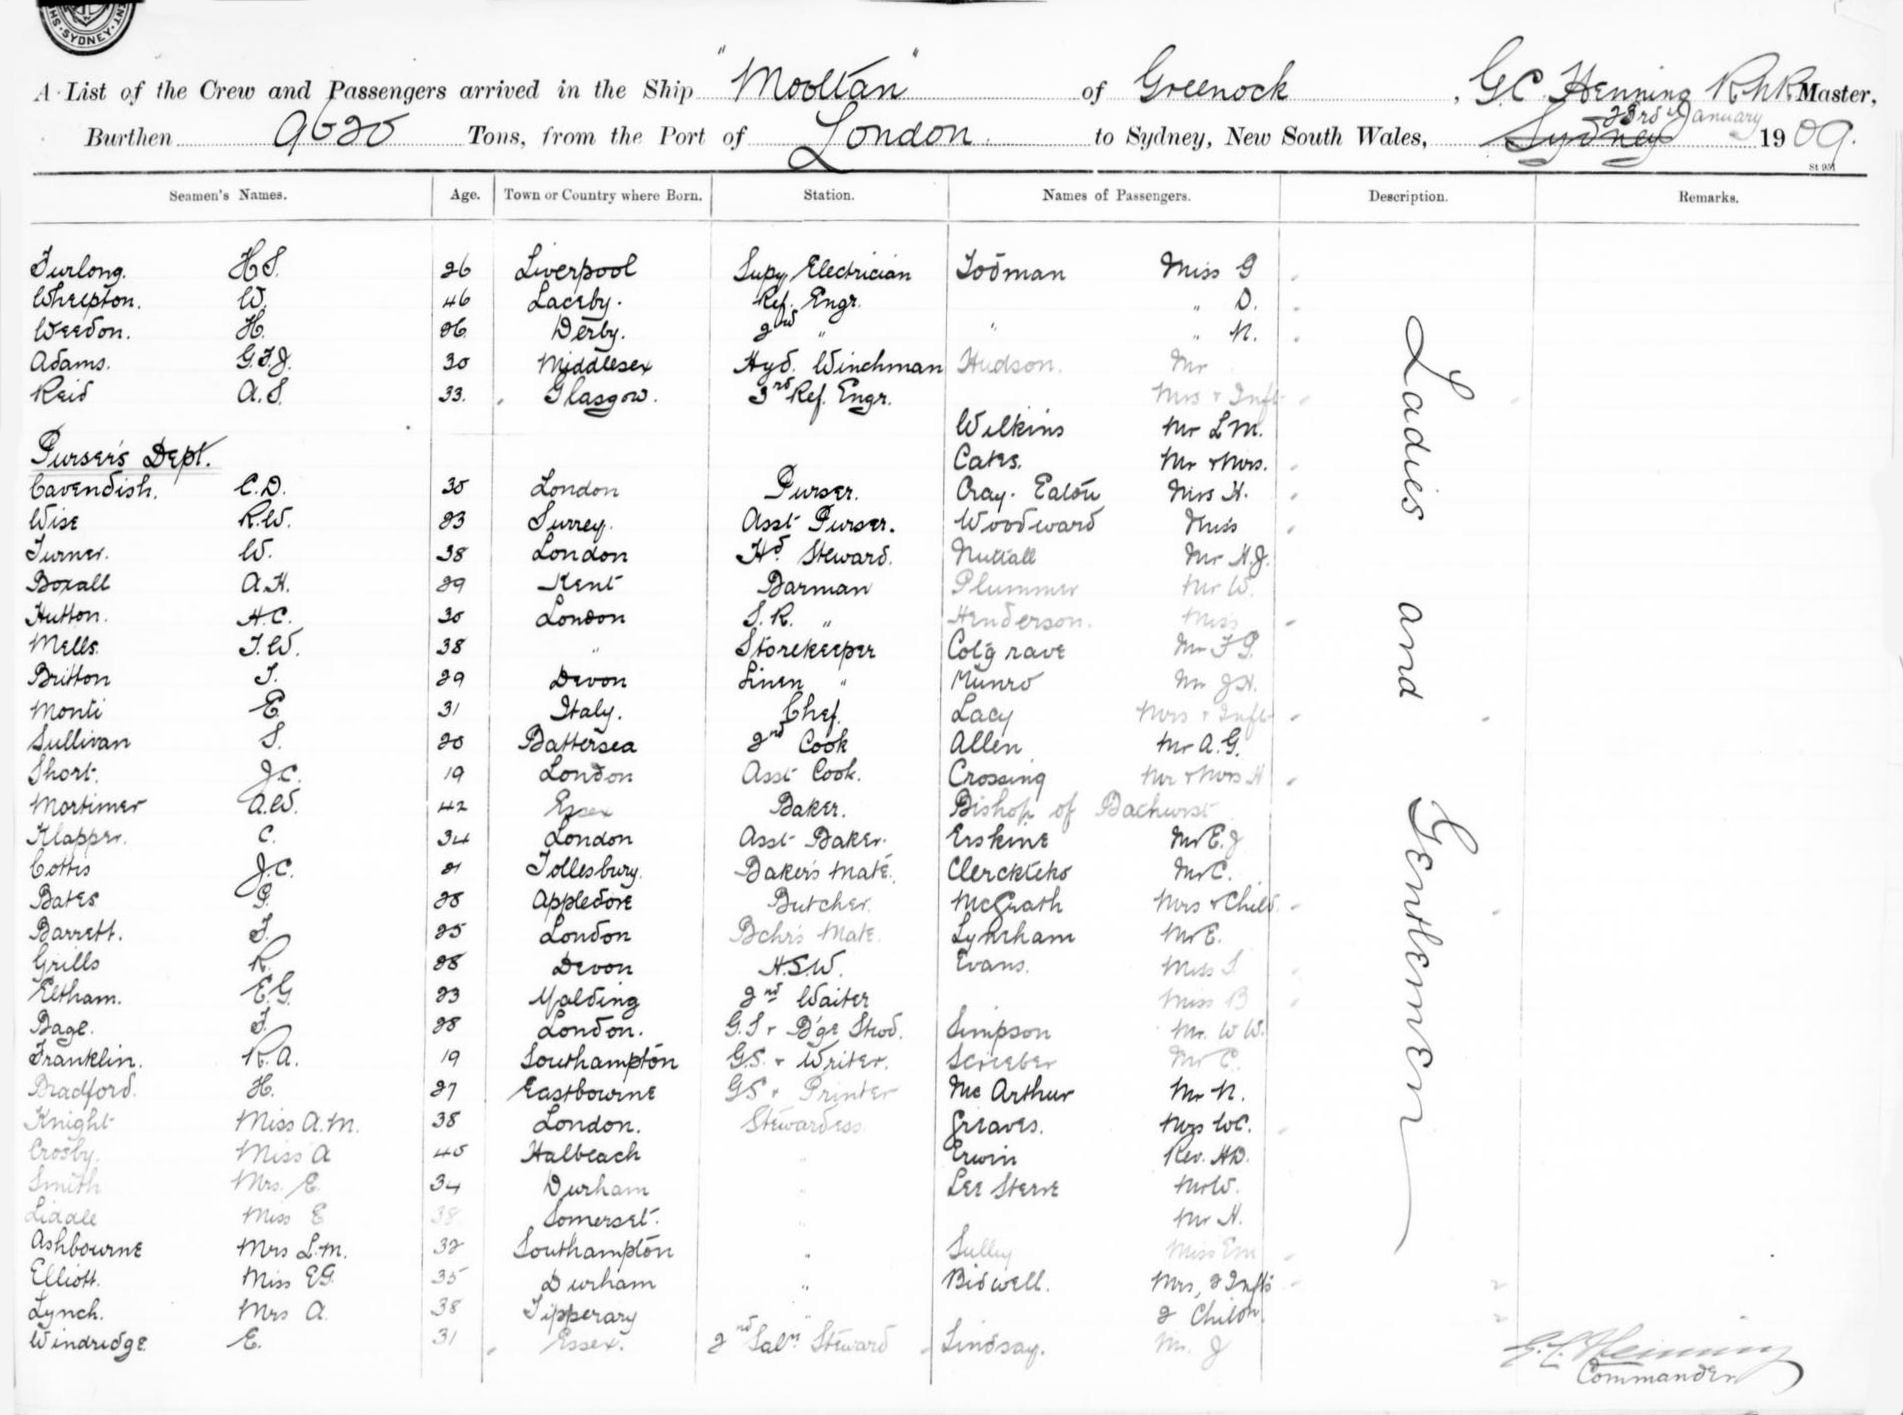 SYDNEY
A List of the Crew and Passengers arrived in the Ship "Mooltan" of Greenock, G.C. Henning R.N.R. Master,
Burthen 9620 Tons, from the Port of London to Sydney, New South Wales, Sydney 23rd January 1909.
St 951
Seamen's Names. Age. Town or Country where Born. Station. Names of Passengers. Description. Remarks.
Furlong. H S. 26 Liverpool Supy Electrician Todman Miss G
Wheepton. W. 46 Laceby. Ref. Engr. " D.
Weedon. H. 26 Derby. 2nd " " " N.
Adams. G.F.J. 30 Middlesex Hyd. Winchman Hudson. Mr
Reid A.S. 33. Glasgow. 3rd Ref. Engr. Mrs & Inft
Wilkins Mr L M.
Purser's Dept. Cates. Mr & Mrs.
Cavendish. C.D. 30 London Purser. Cray. Eaton Mrs H.
Wise R.W. 23 Surrey. Asst Purser. Woodward Miss
Turner. W. 38 London Hd Steward. Nuttall Mr H.J.
Boxall A.H. 29 Kent Barman Plummer Mr W.
Hutton. H.C. 30 London S.R. " Henderson. Miss
Mells. F.W. 38 " Storekeeper Colgrave Mr F G.
Britton F. 29 Devon Linen " Munro Mr J H.
Monti E. 31 Italy. Chef. Lacy Mrs & Inft
Sullivan S. 20 Battersea 2nd Cook Allen Mr A.G.
Short. J.C. 19 London Asst Cook. Crossing Mr & Mrs H
Mortimer A.W. 42 Essex Baker. Bishop of Bathurst
Klapper. C. 34 London Asst Baker. Erskine Mr E.J
Cottis J.C. 21 Tollesbury. Baker's Mate. Mr C.
Bates G. 28 Appledore Butcher. McGrath Mrs & Child.
Barrett. F. 25 London Bchr's Mate. Lyneham Mr E.
Grills R. 28 Devon H.S.W. Evans. Miss S
Eltham. E.G. 23 Yalding 2nd Waiter Miss B
Bage. F. 28 London. G.S & B'ge Stwd. Simpson Mr. W W.
Franklin. R.A. 19 Southampton G.S. & Writer. Scrieber Mr C.
Bradford. H. 27 Eastbourne GS & Printer McArthur Mr N.
Knight Miss A.M. 38 London. Stewardess Greaves. Mrs WC.
Crosby. Miss A 45 Halbeach " Erwin Rev. HD.
Smith Mrs. E. 34 Durham " Lee Steere Mr W.
Liddle Miss E 38 Somerset. " Mr H.
Ashbourne Mrs L.M. 32 Southampton " Sulley Miss EM
Elliott. Miss EG. 35 Durham " Bidwell. Mrs, 2 Infts
Lynch. Mrs A. 38 Tipperary " 2 Childn
Windridge E. 31 Essex. 2nd Saln Steward Lindsay. Mr. J
Ladies and Gentlemen
G.C. Henning
Commander